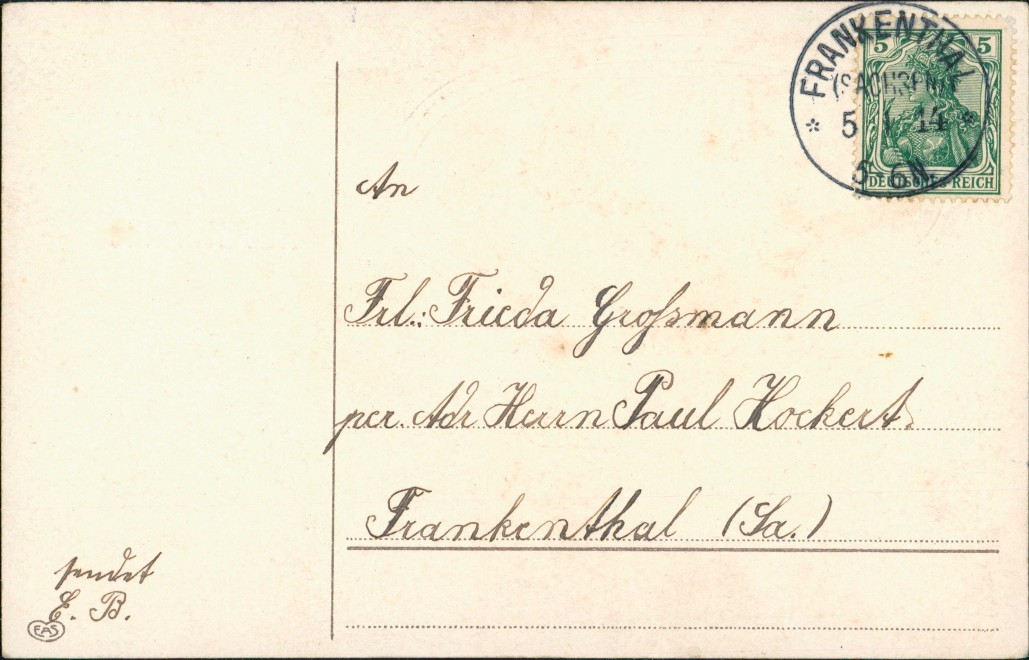 FRANKENTHAL
(SACHSEN)
5 14
5-6N.
5 5
DEUTSCHES REICH
An
Frl.: Frieda Großmann
per. Adr Herrn Paul Hockert.
Frankenthal (Sa.)
sendet
E. B.
EAS